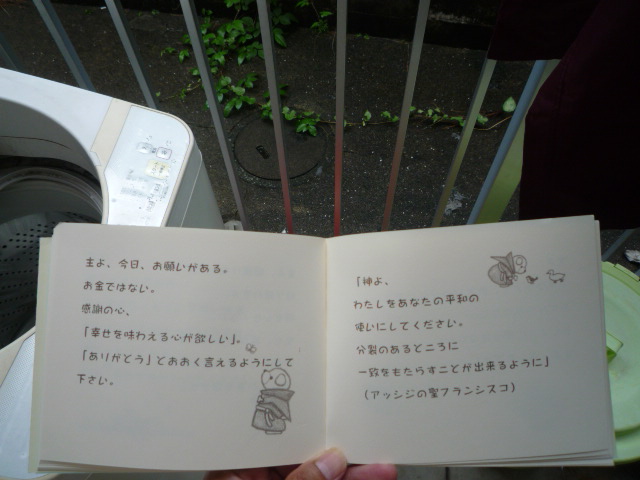 主よ、今日、お願いがある。
お金ではない。
感謝の心、
「幸せを味わえる心が欲しい」。
「ありがとう」とおおく言えるようにして
下さい。
「神よ、
わたしをあなたの平和の
使いにしてください。
分裂のあるところに
一致をもたらすことが出来るように」
（アッシジの聖フランシスコ）